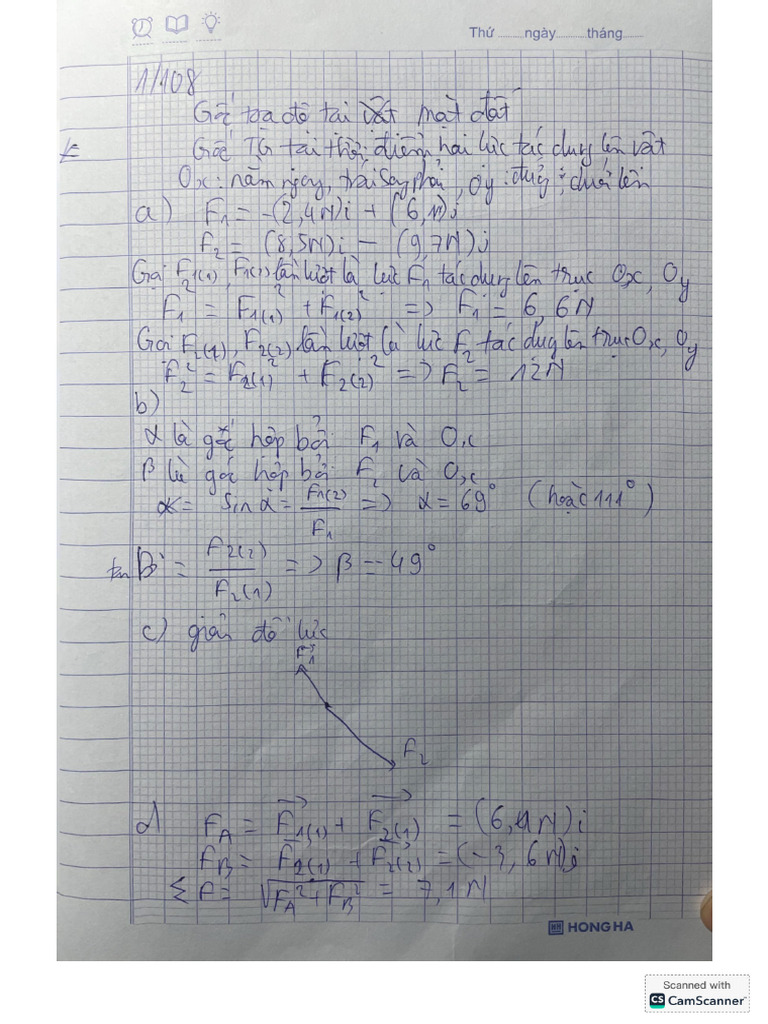 Thứ ..........ngày............tháng.......
1/108
Gốc tọa độ tại vật mặt đất
Gốc TG tại thời điểm hai lực tác dụng lên vật
Ox: nằm ngay, trái sang phải, Oy: đứng; dưới lên
a) F₁ = -(2,4N)i + (6,1N)j
F₂ = (8,5N)i - (9,7N)j
Gọi F₁(1), F₁(2) lần lượt là lực F₁ tác dụng lên trục Ox, Oy
F₁² = F₁(1)² + F₁(2)² => F₁ = 6,6N
Gọi F₂(1), F₂(2) lần lượt là lực F₂ tác dụng lên trục Ox, Oy
F₂² = F₂(1)² + F₂(2)² => F₂ = 12N
b)
α là góc hợp bởi F₁ và Ox
β là góc hợp bởi F₂ và Ox
sin α = F₁(2) / F₁ => α = 69° (hoặc 111°)
tan β = F₂(2) / F₂(1) => β = 49°
c) giản đồ lực
F₁
F₂
d) F_A = F₁(1) + F₂(1) = (6,1N)i
F_B = F₂(1) + F₂(2) = (-3,6N)j
Σ F = √(F_A² + F_B²) = 7,1N
HONG HA
Scanned with
CS CamScanner